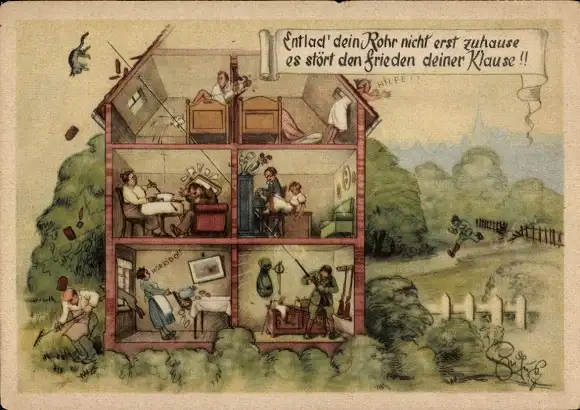 Entlad' dein Rohr nicht erst zuhause
es stört den Frieden deiner Klause!!
HILFE!!